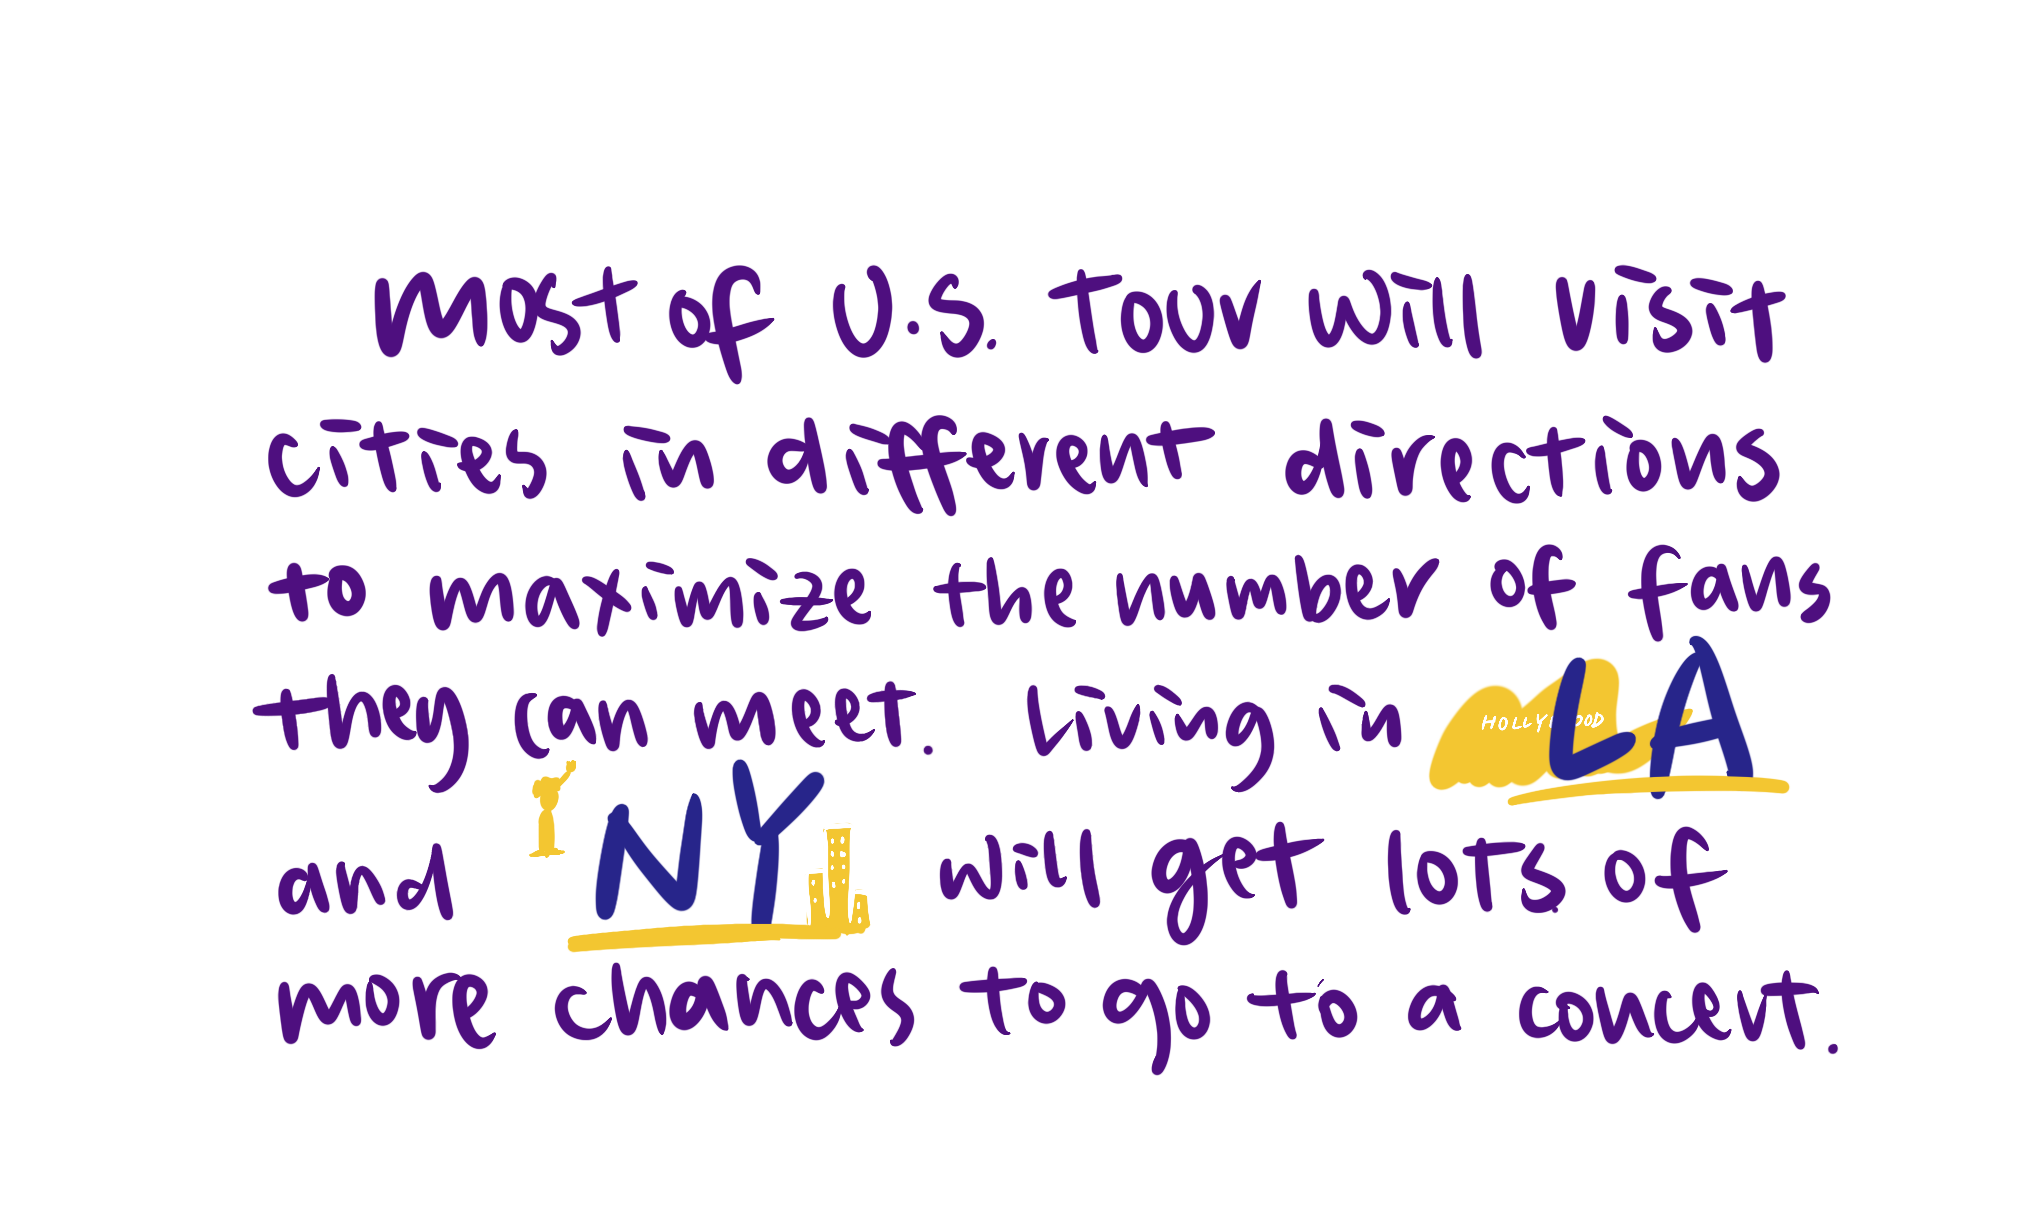 Most of U.S. Tour will visit
cities in different directions
to maximize the number of fans
they can meet. Living in LA
HOLLYWOOD
and NY will get lots of
more chances to go to a concert.